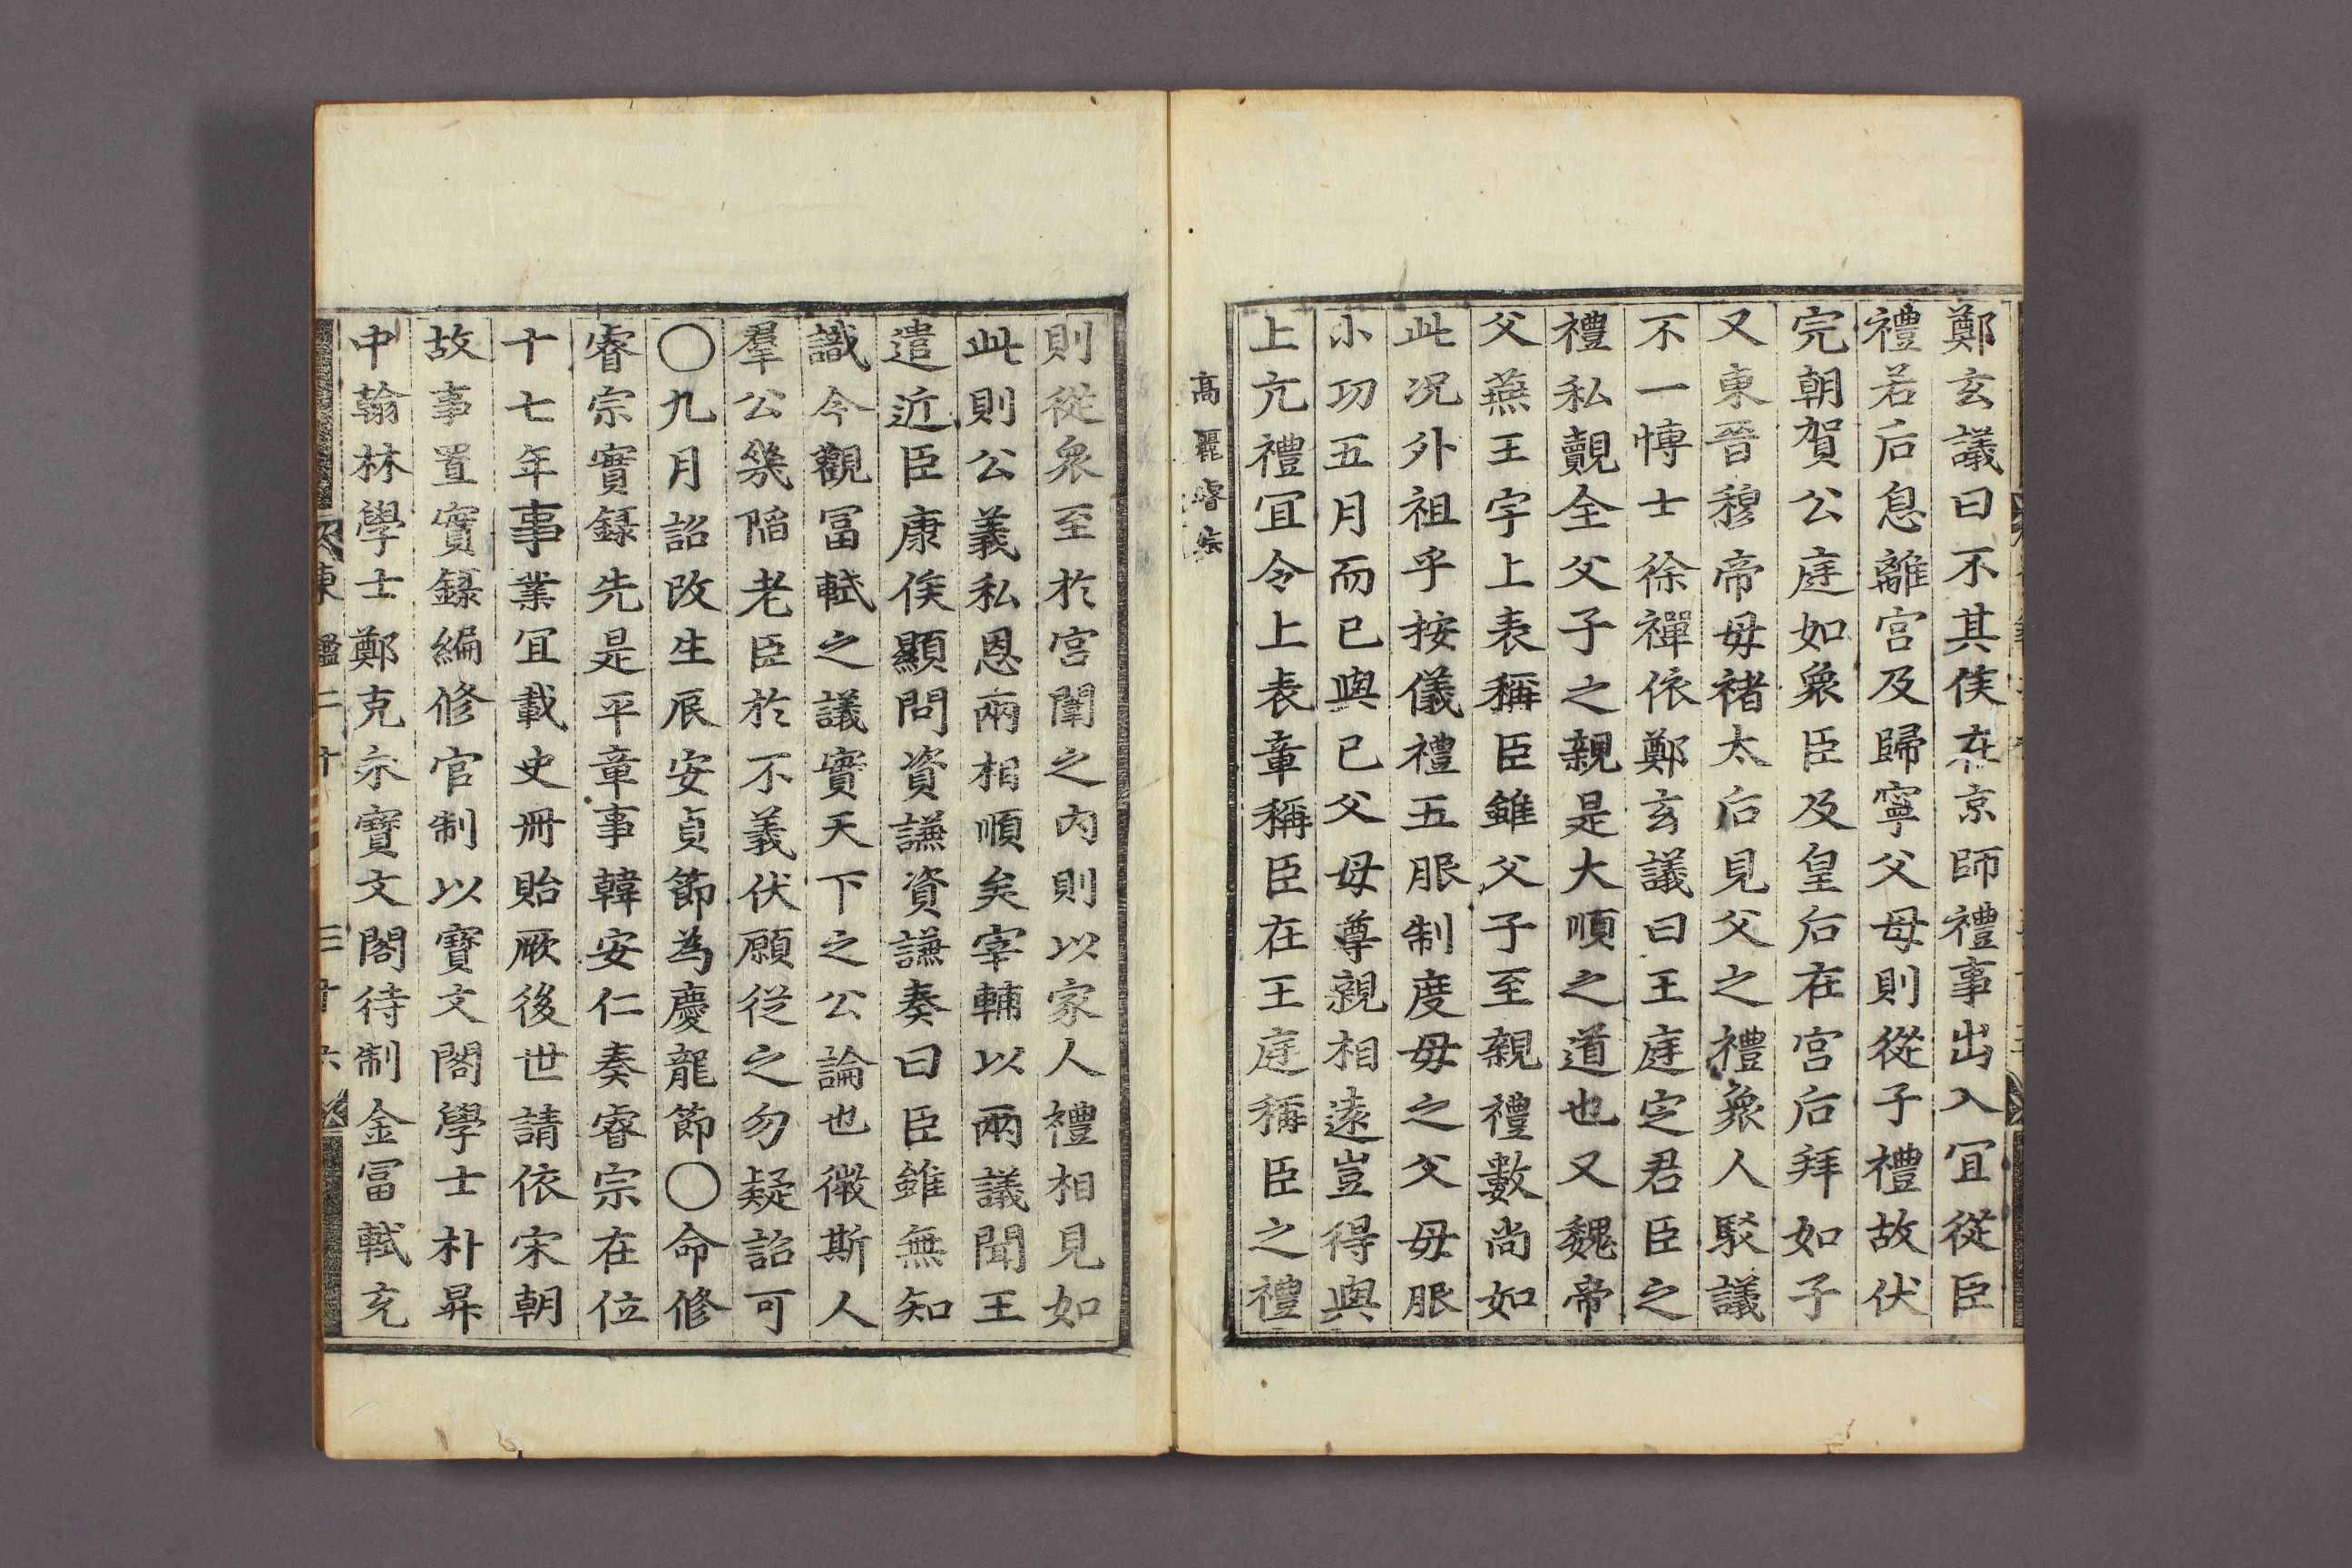 鄭玄議曰不其侯在京師禮事出入冝從臣
禮若后息離宮及歸寧父母則從子禮故伏
完朝賀公庭如衆臣及皇后在宮后拜如子
又東晉穆帝毋褚太后見父之禮衆人駁議
不一博士徐禪依鄭玄議曰王庭定君臣之
禮私覿全父子之親是大順之道也又魏帝
父燕王宇上表稱臣雖父子至親禮數尚如
此况外祖乎按儀禮五服制度毋之父毋服
小功五月而已與己父母尊親相遠豈得與
上亢禮冝令上表章稱臣在王庭稱臣之禮
高麗睿宗
則從衆至於宮闈之內則以家人禮相見如
此則公義私恩兩相順矣宰輔以兩議聞王
遣近臣康侯顯問資謙資謙奏曰臣雖無知
識今觀冨軾之議實天下之公論也微斯人
羣公幾陷老臣於不義伏願從之勿疑詔可
〇九月詔改生辰安貞節為慶龍節〇命修
睿宗實録先是平章事韓安仁奏睿宗在位
十七年事業冝載史冊貽厥後世請依宋朝
故事置實録編修官制以寶文閣學士朴昇
中翰林學士鄭克永寶文閣待制金冨軾充
東鑑二十 三十六